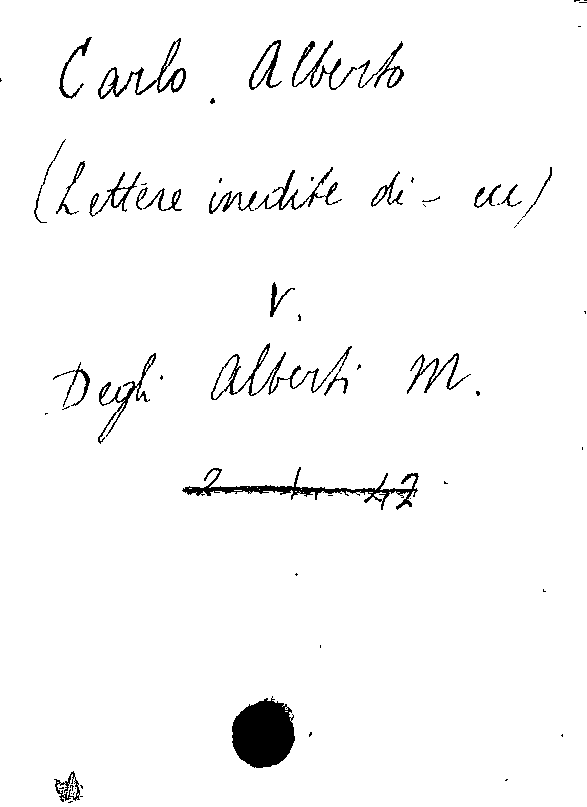 Carlo. Alberto
(Lettere inedite di - ecc)
V.
Degli Alberti M.
2 1 42